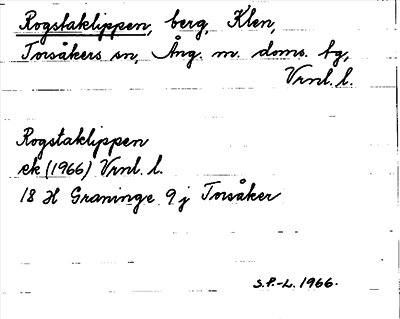 Rogstaklippen, berg, Klen,
Torsåkers sn, Ång. m. doms. bg,
Vrnl. l.
Rogstaklippen
ek (1966) Vrnl. l.
18 H Graninge 9 j Torsåker
S.P.-L. 1966.